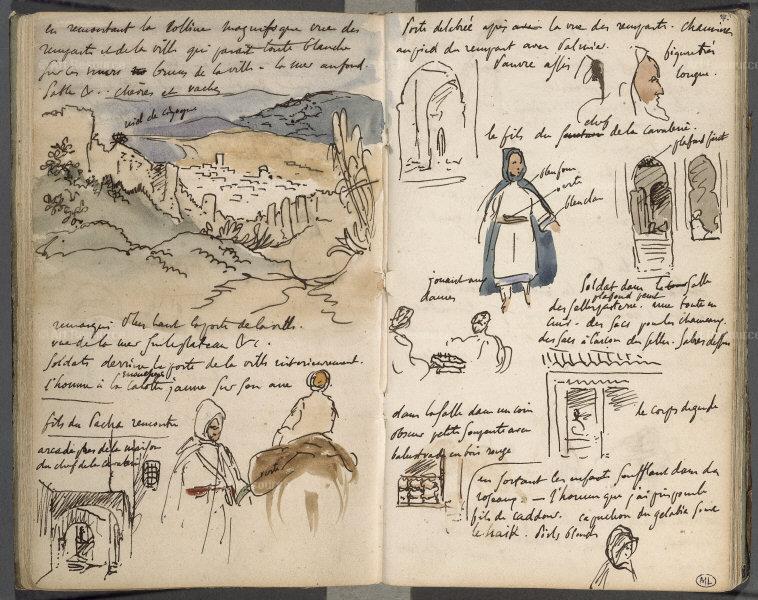 en remontant la colline magnifique vue des
remparts et de la ville qui parait toute blanche
sur les murs bruns de la ville - la mer au fond.
Sable &c. chèvres et vaches
nid de cigogne
remarqué plus haut la porte de la ville.
vue de la mer sur le plateau &c.
Soldats derrière la porte de la ville intérieurement.
l'homme à la calotte jaune sur son âne
fils du Pacha rencontré
arcade près de la maison
du chef de la cavalerie
verte
Porte délabrée après avoir la vue des remparts. Chaumières
au pied du rempart avec Palmier.
pauvre assis
figure très
longue.
chef
le fils du de la cavalerie.
plafond peint
bleu foncé
verte
bleu clair
jouant aux
dames
Soldat dans la salle
plafond peint
une toute en
cuir - des sacs pour les chameaux.
des sacs à l'arçon des selles. Sabres
le corps de garde
dans la salle dans un coin
obscur petite soupente avec
balustrade en bois rouge
en sortant les enfants soufflant dans des
roseaux - l'homme que j'ai pris pour le
fils de caddour. capuchon du gelabia sous
le haïk. Poils blonds
ML